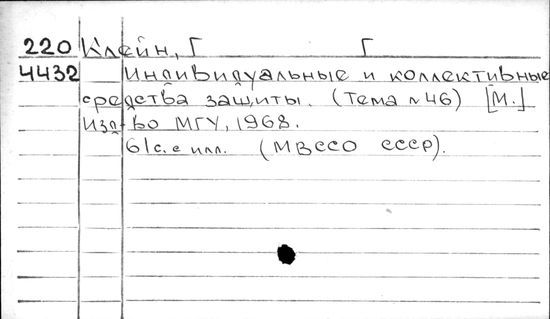 220 Клейн, Г Г
4432 Индивидуальные и коллективные
средства защиты. (Тема №46) [М.]
Изд-во МГУ, 1968.
61с. с илл. (МВССО СССР).